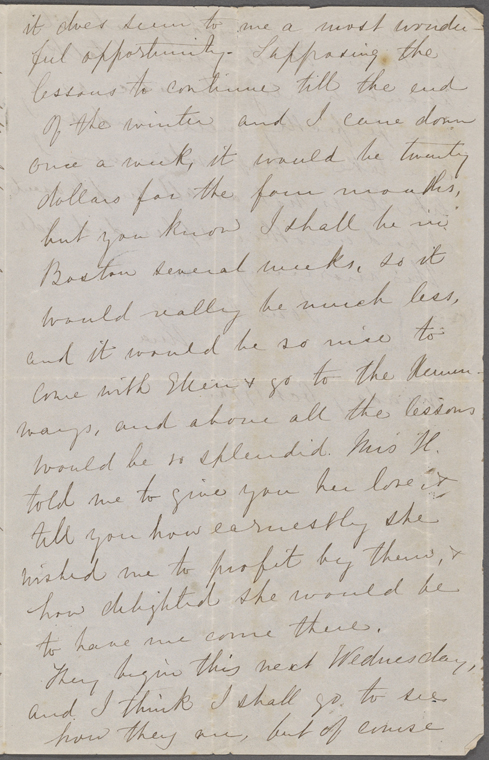 it does seem to me a most wonder-
ful opportunity. Supposing the
lessons to continue till the end
of the winter and I came down
once a week, it would be twenty
dollars for the four months,
but you know I shall be in
Boston several weeks, so it
would really be much less,
and it would be so nice to
come with Ellen & go to the Hemen-
ways, and above all the lessons
would be so splendid. Mrs H.
told me to give you her love &
tell you how earnestly she
wished me to profit by them, &
how delighted she would be
to have me come there.
They begin this next Wednesday,
and I think I shall go to see
how they are, but of course